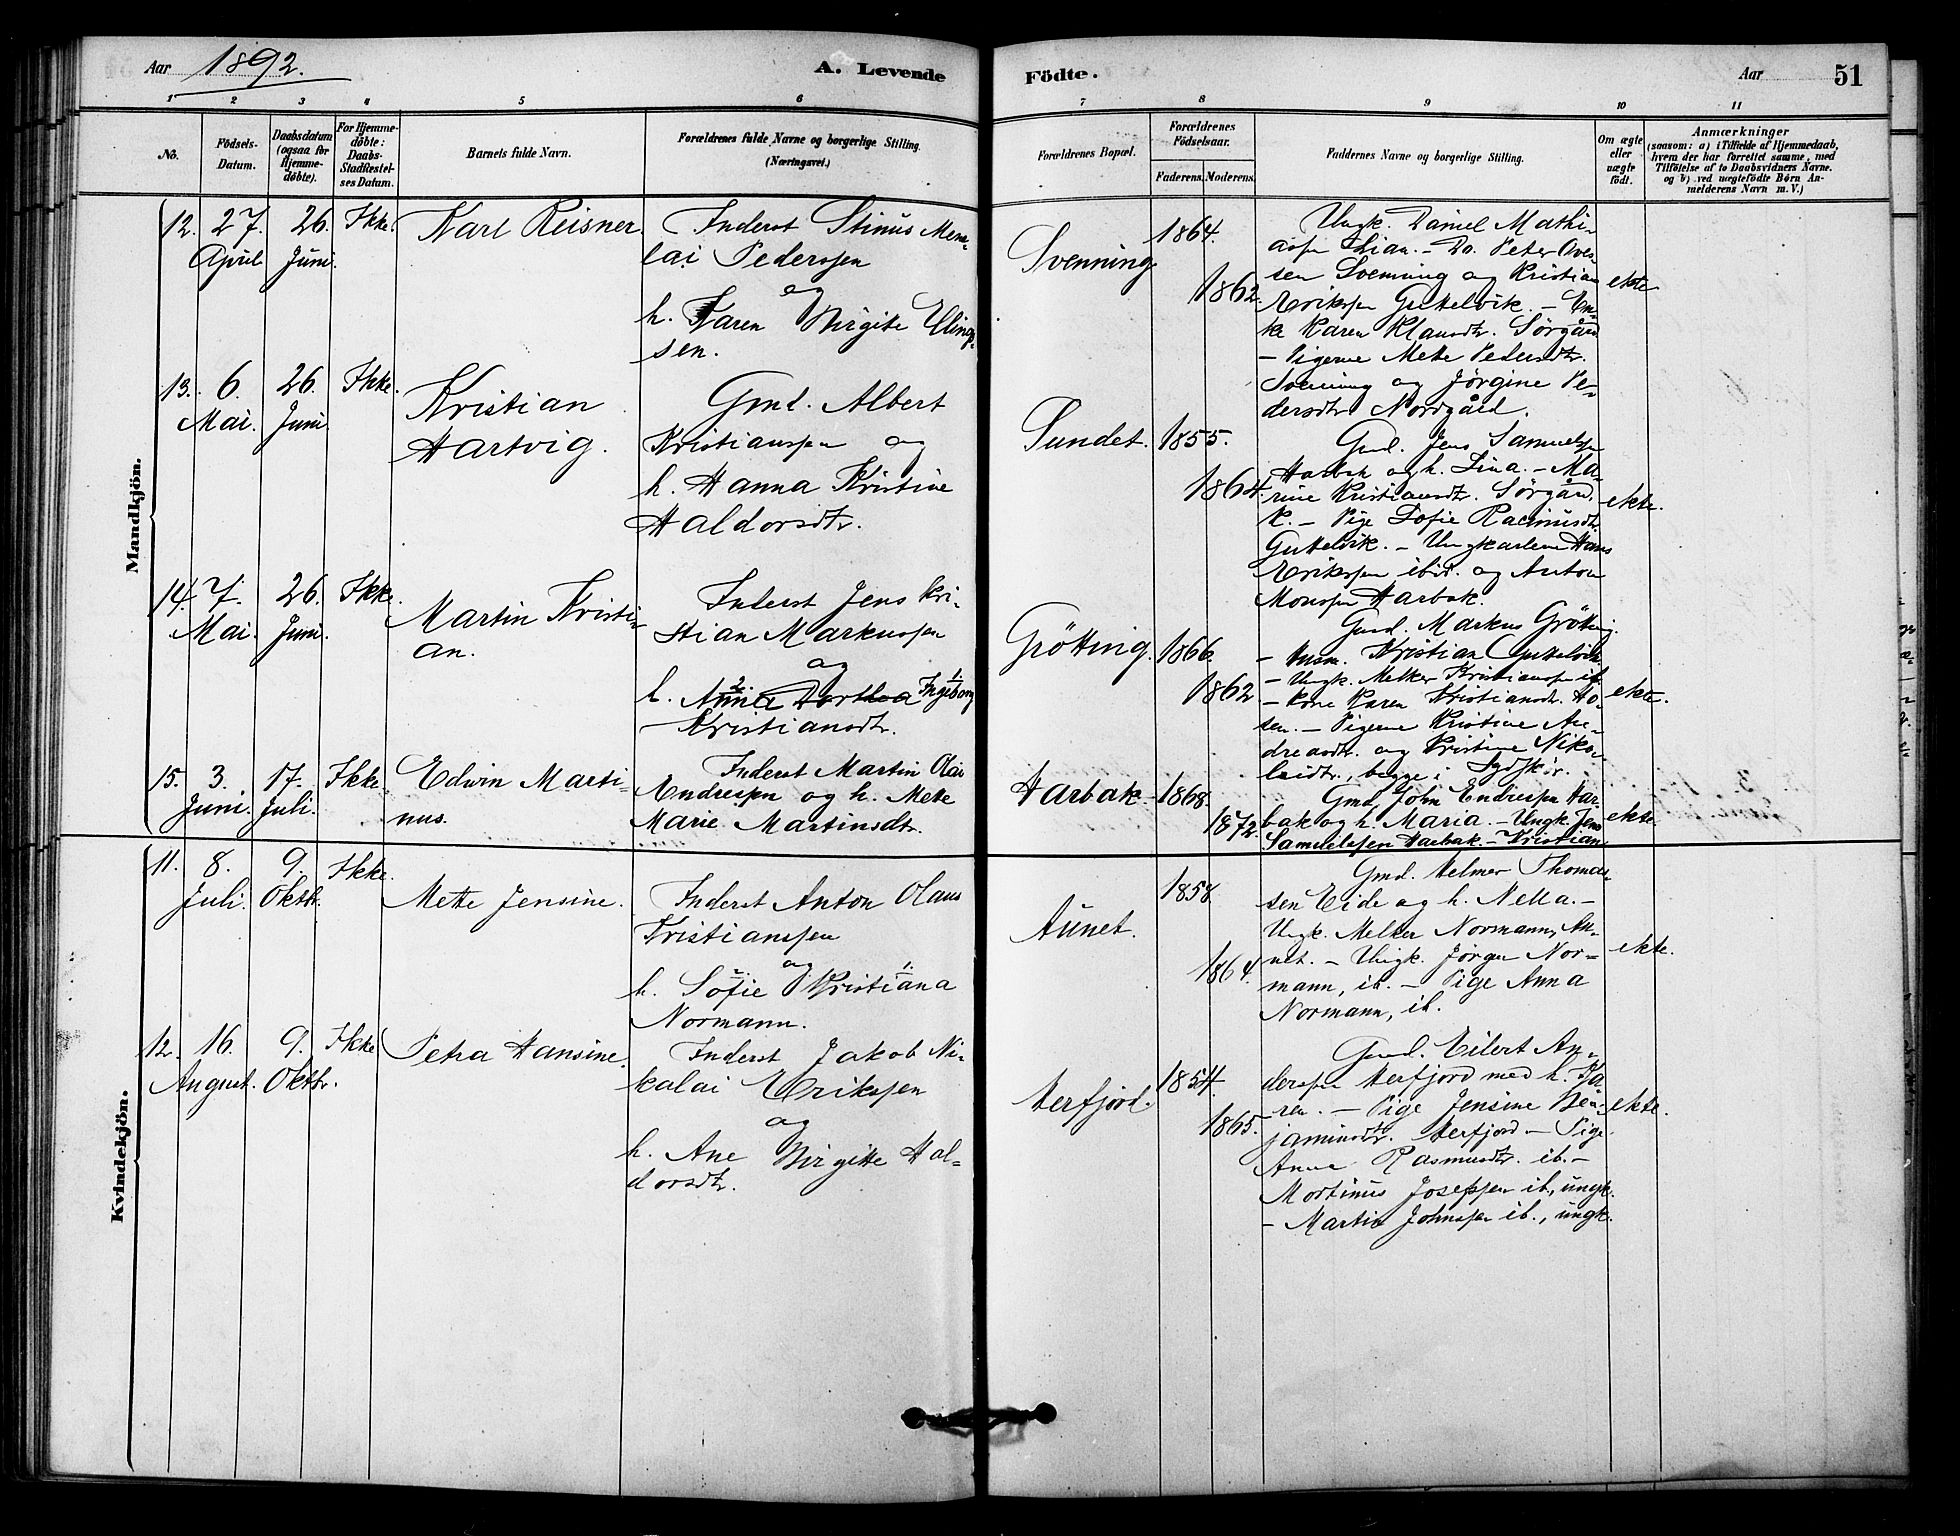 Aar 1892.
A. Levende
Födte.
Aar
51
1 2 3 4 5 6 7 8 9 10 11
No.
Födsels-
Datum.
Daabsdatum
(ogsaa for
Hjemme-
døbte).
For Hjemme-
døbte:
Daabs-
Stadfæstel-
ses Datum.
Barnets fulde Navn.
Forældrenes fulde Navne og borgerlige Stilling.
(Næringsvei.)
Forældrenes Bopæl.
Forældrenes
Födselsaar.
Faderens. Moderens.
Faddernes Navne og borgerlige Stilling.
Om ægte
eller
uægte
født.
Anmærkninger
(saasom: a) i Tilfælde af Hjemmedaab,
hvem der har forrettet samme, med
Tilføielse af to Daabsvidners Navne.
og b) ved uægtefødte Børn An-
melderens Navn m. V.)
Mandkjön.
12. 27. April 26. Juni. Ikke.
Karl Reisner
Inderst Stinus
lai Pederssen
og
h. Karen Birgite Elling-
sen.
Svenning
1864.
1862.
Ungk. Daniel Mathi-
assen Lian. – Do. Peter
sen Svenning og Kristian
Erikssen Guttelvik. – En-
ke Karen Klausdtr. Sørgård
– Pigerne Mette Pedersdtr.
Svenning og Jørgine Pe-
dersdtr. Nordgård.
ekte
13. 6. Mai. 26. Juni. Ikke.
Kristian
Hartvig.
Gmd. Albert
Kristianssen og
h. Hanna Kristine
Haldorsdtr.
Sundet.
1855.
1864.
Gmd. Jens Samuelssen
Harbak og h. Lina. – Ma-
rine Kristiansdtr. Sørgård,
K. – Pige Sofie Rasmusdtr.
Guttelvik. – Ungkarlene Hans
Erikssen ibid. og Anton
Monssen Harbak.
ekte.
14. 7. Mai. 26. Juni. Ikke.
Martin Kristi-
an.
Inderst Jens Kri-
stian Markussen
og
h. Anna Dorthea Ingeborg
Kristiansdtr.
Grötting.
1866.
1862
Gmd. Markus Grötting.
– Kristian Guttelvik.
– Ungk. Melker Kristianssen ib.
– Kone Karen Kristiansdtr. Ho-
sen. – Pigerne Kristine An-
dreasdtr. og Kristine Niko-
laidtr., begge i Sydskjør.
ekte.
15. 3. Juni. 17. Juli. Ikke.
Edvin Marti-
nus.
Inderst Martin Olai
Endressen og h. Mette
Marie Martinsdtr.
Harbak
1868.
1872.
Gmd. John Endressen Har-
bak og h. Maria. – Ungk. Jens
Samuelssen Harbak. – Kristian
ekte.
Kvindekjön.
11. 8. Juli. 9. Oktbr. Ikke.
Mette Jensine.
Inderst Anton Olaus
Kristianssen
og
h. Sofie Kristiana
Normann.
Aunet.
1858
1864.
Gmd. Helmer Thomas-
sen Eide og h. Nella. –
Ungk. Melker Normann, Au-
net. – Ungk. Jørgen Nor-
mann, ib. – Pige Anna
Normann, ib.
ekte.
12. 16. August. 9. Oktbr. Ikke
Petra Hansine.
Inderst Jakob Ni-
kolai Erikssen
og
h. Ane Birgitte Hal-
dorsdtr.
Herfjord.
1854.
1865.
Gmd. Eilert An-
derssen Herfjord med h. Ka-
ren. – Pige Jensine Ben-
jaminsdtr. Herfjord – Pige
Anna Rasmusdtr. ib. –
Mortinus Josefsen ib., ungk.
– Martin Johnssen ib., ungk.
ekte.